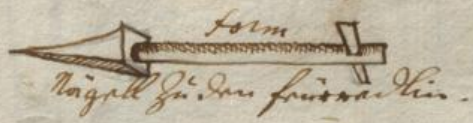 form
Nägell Zu den feürredlin.